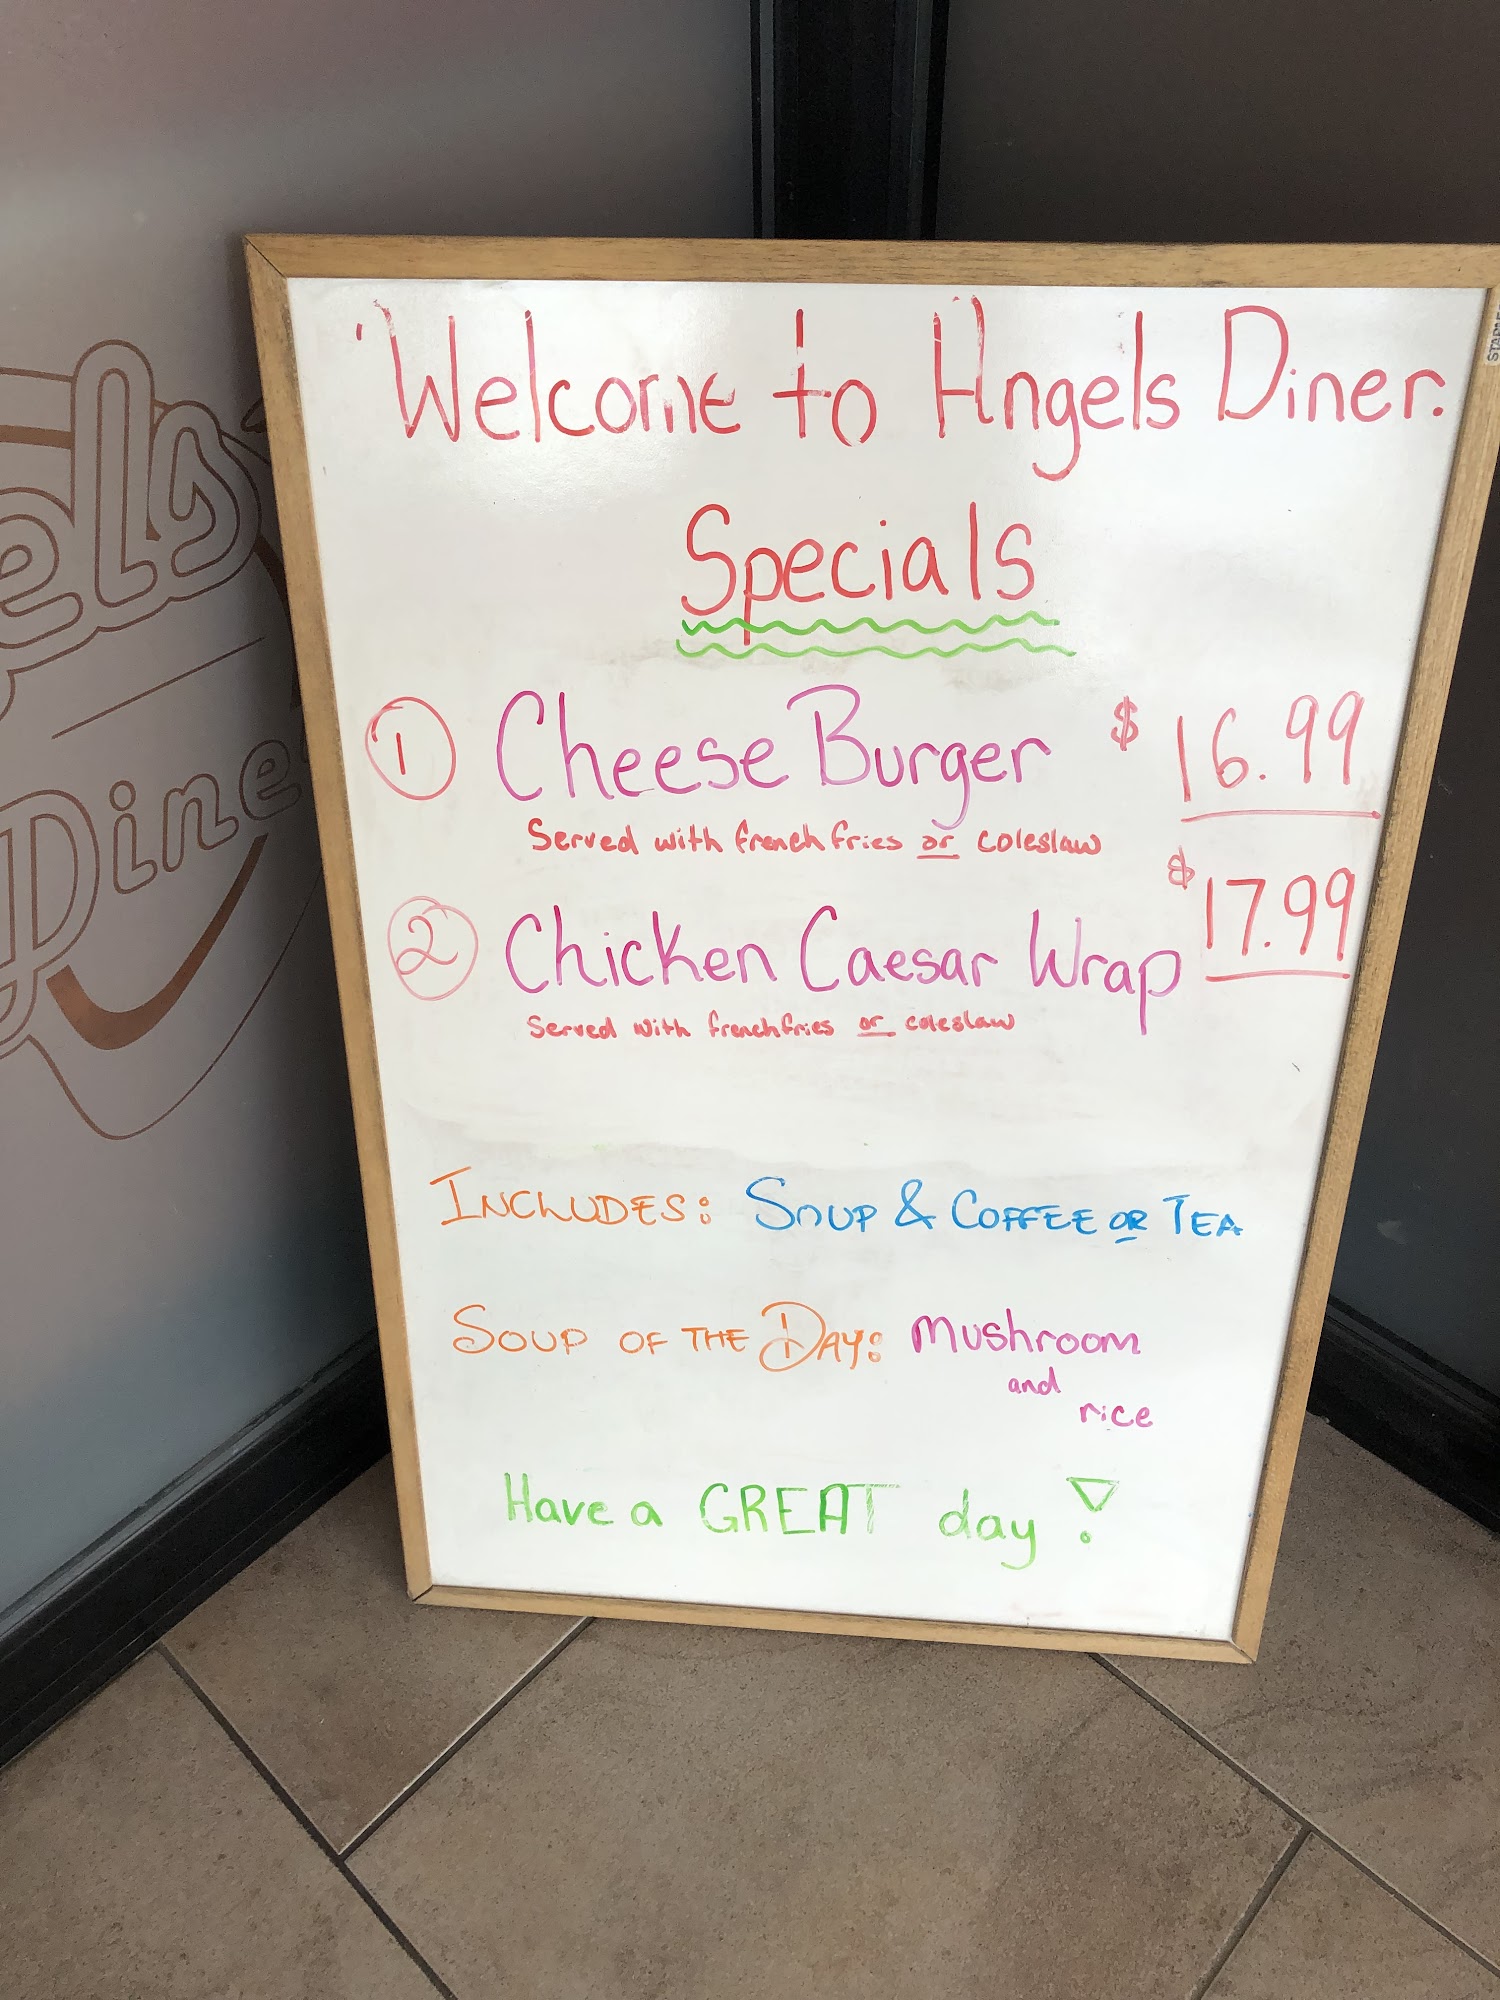 els
Diner
STAPLES
Welcome to Angels Diner.
Specials
1 Cheese Burger $16.99
Served with french fries or coleslaw
2 Chicken Caesar Wrap $17.99
Served with french fries or coleslaw
INCLUDES: SOUP & COFFEE OR TEA
SOUP OF THE DAY: mushroom
and
rice
Have a GREAT day!